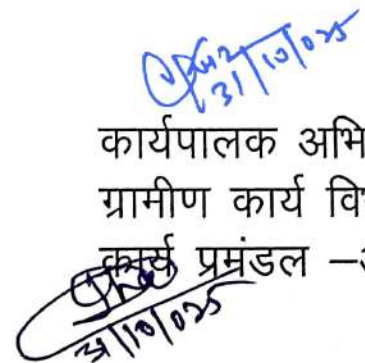 31/10/025
कार्यपालक अभि
ग्रामीण कार्य वि
कार्य प्रमंडल –
31/10/025